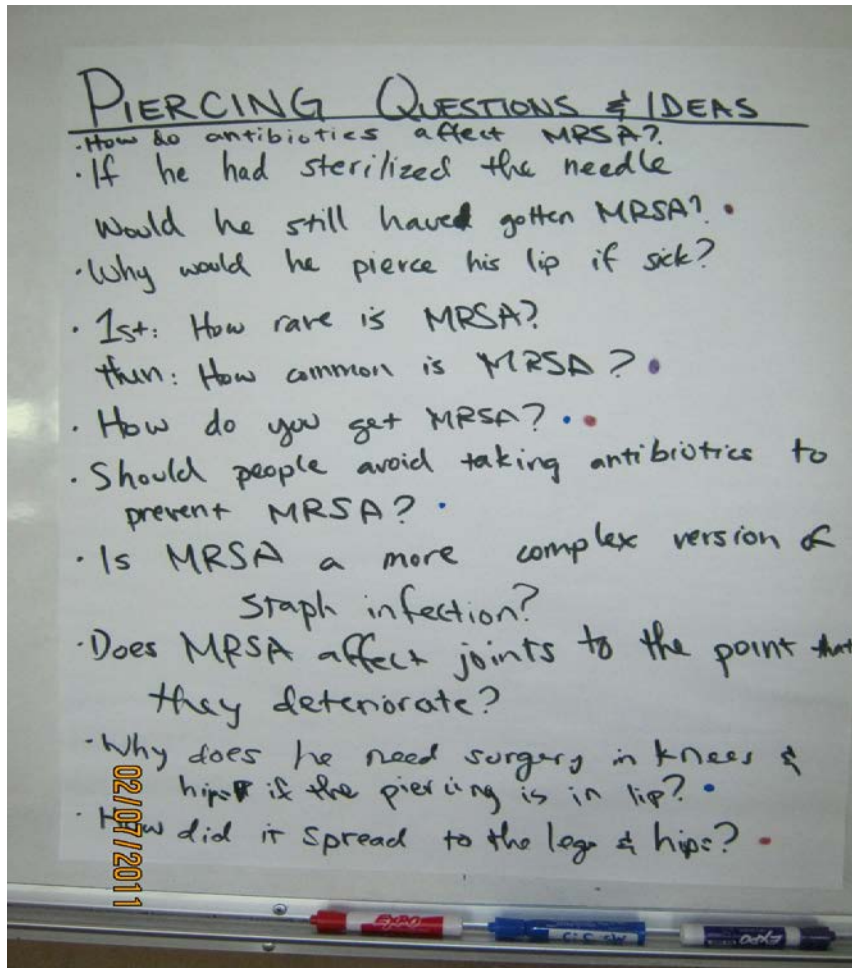 PIERCING QUESTIONS & IDEAS
· How do antibiotics affect MRSA?
· If he had sterilized the needle
would he still have gotten MRSA?
· Why would he pierce his lip if sick?
· 1st: How rare is MRSA?
then: How common is MRSA?
· How do you get MRSA?
· Should people avoid taking antibiotics to
prevent MRSA?
· Is MRSA a more complex version of
staph infection?
· Does MRSA affect joints to the point that
they deteriorate?
· Why does he need surgery in knees &
hips if the piercing is in lip?
· How did it spread to the legs & hips?
02/07/2011
EXPO
EXPO